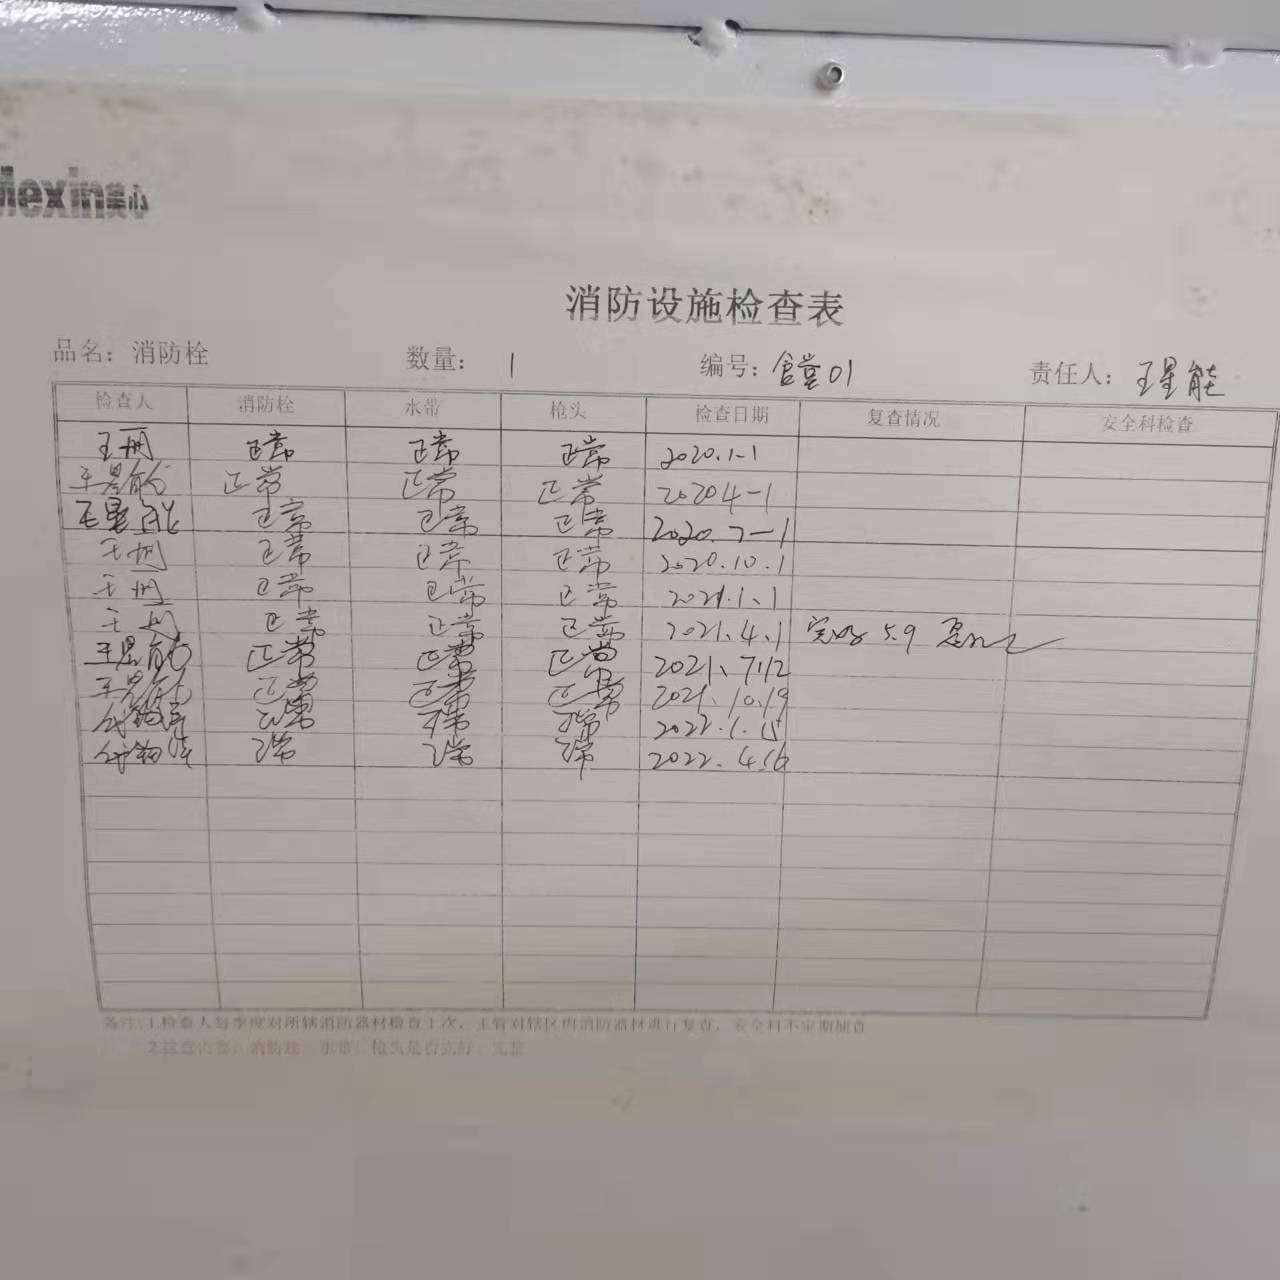 消防设施检查表
品名：消防栓 数量：1 编号：食堂01 责任人：王星能
检查人 消防栓 水带 枪头 检查日期 复查情况 安全科检查
正常 正常 正常 2020.1-1
王星能 正常 正常 正常 2020 4-1
王星能 正常 正常 正常 2020.7-1
正常 正常 正常 2020.10.1
正常 正常 正常 2021.1.1
正常 正常 正常 2021.4.1 完好 5.9
王星能 正常 正常 正常 2021、7.12
王星能 正常 正常 正常 2021.10.19
正常 正常 正常 2022.1.15
正常 正常 正常 2022.4.16
备注：1.检查人每季度对所辖消防器材检查1次，主管对辖区内消防器材进行复查，安全科不定期抽查
2.检查内容：消防栓、水带、枪头是否完好、完整